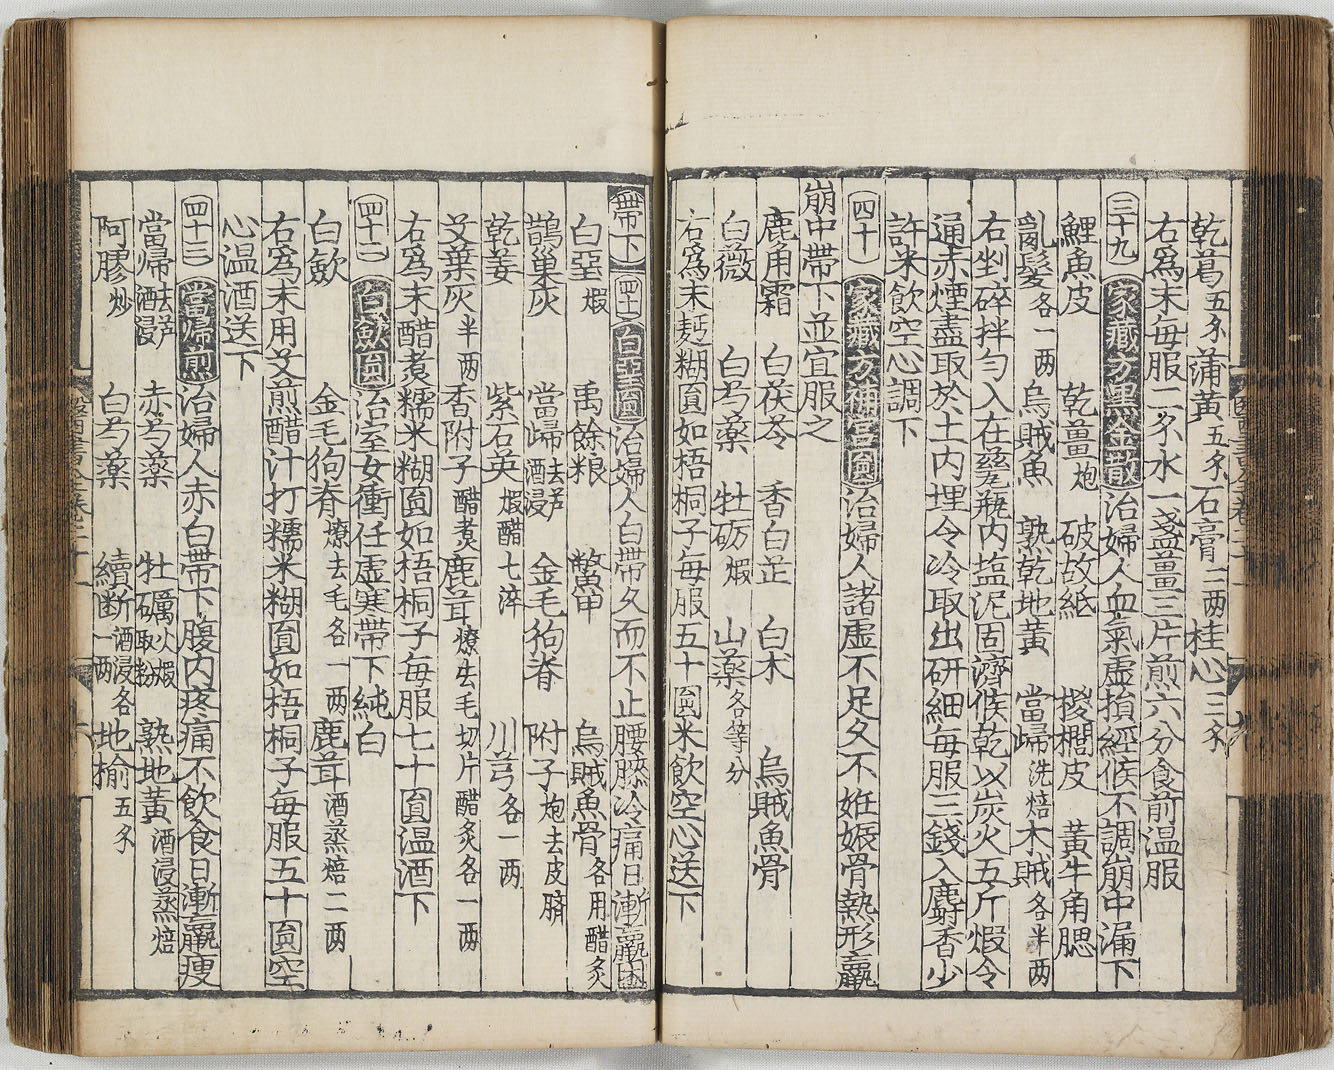 乾葛五分蒲黃五分石膏二两桂心三分
右爲末每服二分水一盞薑三片煎六分食前温服
三十九 家藏方黑金散 治婦人血氣虛損經候不調崩中漏下
鯉魚皮 乾薑炮 破故紙 椶櫚皮 黃牛角腮
亂髮各一两烏賊魚 熟乾地黃 當歸洗焙木賊各半两
右剉碎拌勻入在甆瓶内塩泥固濟候乾以炭火五斤煅令
通赤煙盡取於土内埋令冷取出研細每服三錢入麝香少
許米飲空心調下
四十 家藏方補宫圎 治婦人諸虛不足久不姙娠骨熱形羸
崩中帶下並宜服之
鹿角霜 白茯苓 香白芷 白朮 烏賊魚骨
白薇 白芍藥 牡砺煅 山藥各等分
右爲末麪糊圎如梧桐子每服五十圎米飲空心送下
帶下 四十一 白堊圎 治婦人白帶久而不止腰膝冷痛日漸羸困
白堊煅 禹餘粮 鱉甲 烏賊魚骨各用醋炙
鵲巢灰 當歸去芦酒浸 金毛狗脊 附子炮去皮臍
乾姜 紫石英煅醋七淬 川芎各一两
艾葉灰半两香附子醋煮鹿茸燎去毛切片醋炙各一两
右爲末醋煮糯米糊圎如梧桐子每服七十圎温酒下
四十二 白斂圎 治室女衝任虛寒帶下純白
白斂 金毛狗脊燎去毛各一两鹿茸酒蒸焙二两
右爲末用艾煎醋汁打糯米糊圎如梧桐子每服五十圎空
心温酒送下
四十三 當歸煎 治婦人赤白帶下腹内疼痛不飲食日漸羸瘦
當歸去芦酒浸 赤芍藥 牡礪火煅取粉 熟地黃酒浸蒸焙
阿膠炒 白芍藥 續断酒浸各一两地榆五分